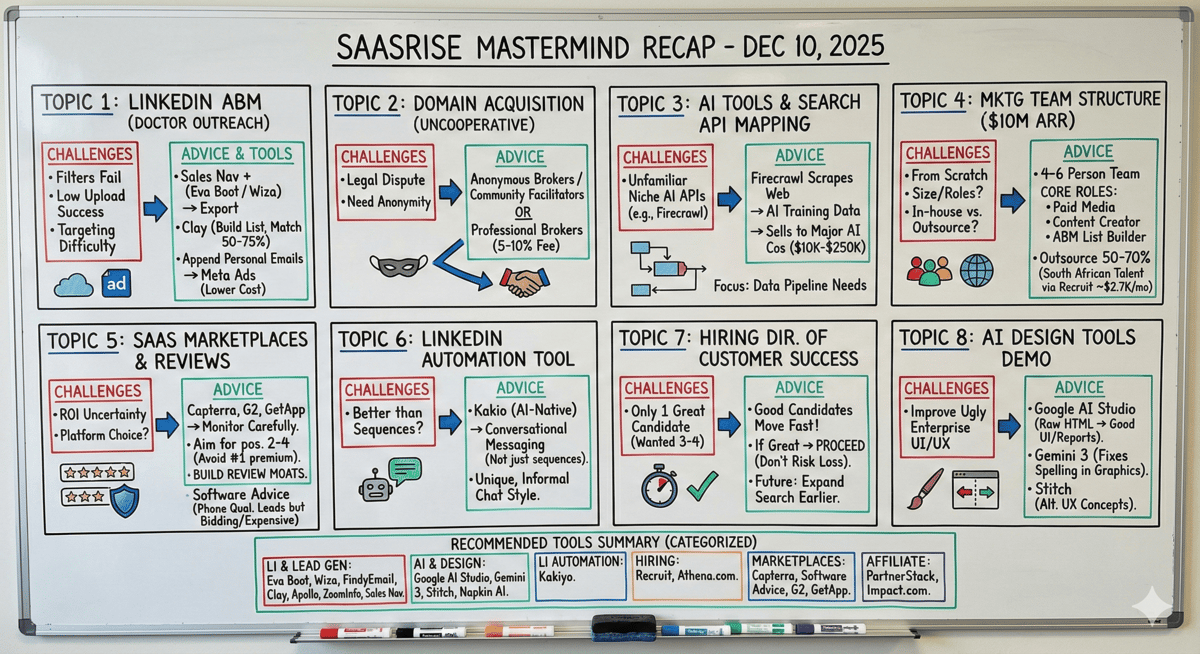 SAASRISE MASTERMIND RECAP - DEC 10, 2025
TOPIC 1: LINKEDIN ABM
(DOCTOR OUTREACH)
CHALLENGES
• Filters Fail
• Low Upload
Success
• Targeting
Difficulty
ad
ADVICE & TOOLS
• Sales Nav +
(Eva Boot / Wiza)
→ Export
• Clay (Build List, Match
50-75%)
• Append Personal Emails
→ Meta Ads
(Lower Cost)
TOPIC 2: DOMAIN ACQUISITION
(UNCOOPERATIVE)
CHALLENGES
• Legal Dispute
• Need Anonymity
ADVICE
Anonymous Brokers /
Community Facilitators
OR
Professional Brokers
(5-10% Fee)
TOPIC 3: AI TOOLS & SEARCH
API MAPPING
CHALLENGES
• Unfamiliar
Niche AI APIs
(e.g., Firecrawl)
ADVICE
Firecrawl Scrapes
Web
→ AI Training Data
→ Sells to Major AI
Cos ($10K-$250K)
Focus: Data Pipeline Needs
TOPIC 4: MKTG TEAM STRUCTURE
($10M ARR)
CHALLENGES
• From Scratch
• Size/Roles?
• In-house vs.
Outsource?
ADVICE
• 4-6 Person Team
CORE ROLES:
• Paid Media
• Content Creator
• ABM List Builder
• Outsource 50-70%
(South African Talent
via Recruit ~$2.7K/mo)
TOPIC 5: SAAS MARKETPLACES
& REVIEWS
CHALLENGES
• ROI Uncertainty
• Platform Choice?
ADVICE
Capterra, G2, GetApp
→ Monitor Carefully.
• Aim for pos. 2-4
(Avoid #1 premium).
• BUILD REVIEW MOATS.
• Software Advice
(Phone Qual. Leads but
Bidding/Expensive)
TOPIC 6: LINKEDIN
AUTOMATION TOOL
CHALLENGES
• Better than
Sequences?
ADVICE
• Kakio (AI-Native)
→ Conversational
Messaging
(Not just sequences).
• Unique, Informal
Chat Style.
TOPIC 7: HIRING DIR. OF
CUSTOMER SUCCESS
CHALLENGES
• Only 1 Great
Candidate
(Wanted 3-4)
ADVICE
• Good Candidates
Move Fast!
• If Great → PROCEED
(Don't Risk Loss).
• Future: Expand
Search Earlier.
TOPIC 8: AI DESIGN TOOLS
DEMO
CHALLENGES
• Improve Ugly
Enterprise
UI/UX
ADVICE
• Google AI Studio
(Raw HTML → Good
UI/Reports).
• Gemini 3 (Fixes
Spelling in Graphics).
• Stitch
(Alt. UX Concepts).
RECOMMENDED TOOLS SUMMARY (CATEGORIZED)
LI & LEAD GEN:
Eva Boot, Wiza, FindyEmail,
Clay, Apollo, ZoomInfo, Sales Nav.
AI & DESIGN:
Google AI Studio, Gemini
3, Stitch, Napkin AI.
LI AUTOMATION:
Kakiyo.
HIRING:
Recruit, Athena.com.
MARKETPLACES:
Capterra, Software
Advice, G2, GetApp.
AFFILIATE:
PartnerStack,
Impact.com.